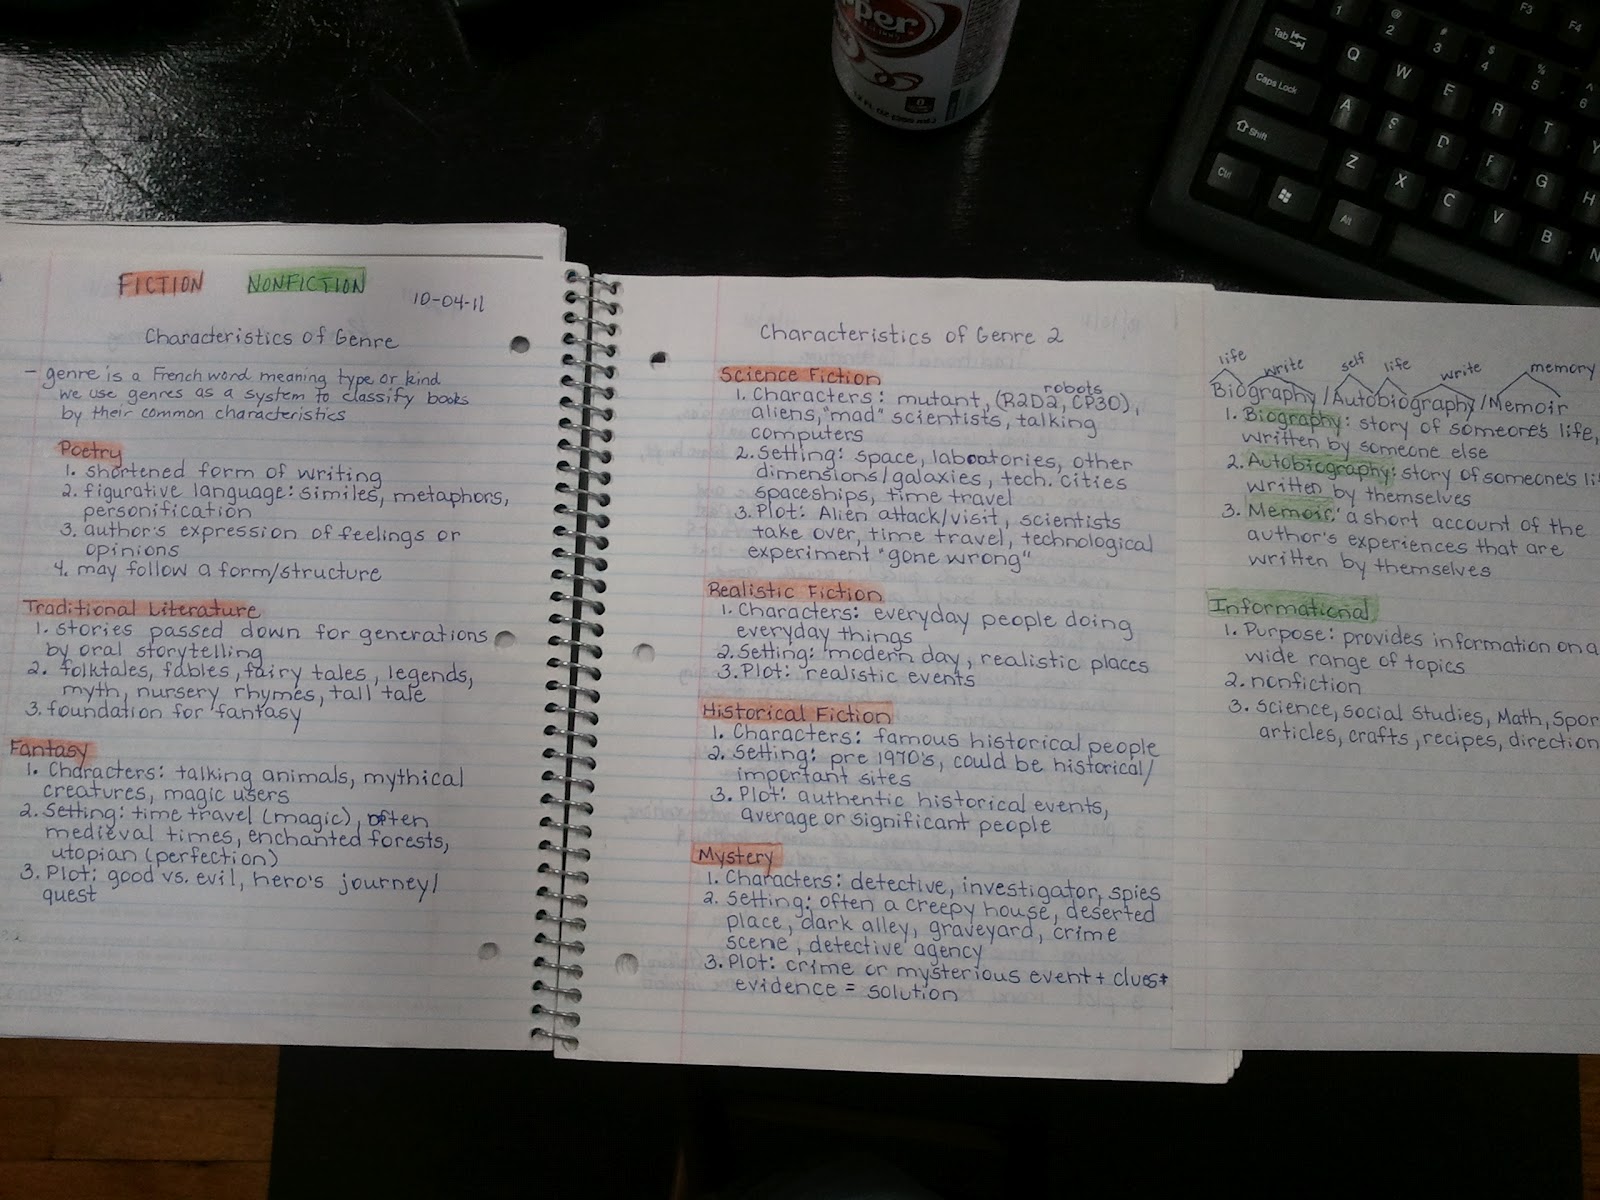 FICTION NONFICTION
10-04-11
Characteristics of Genre
- genre is a French word meaning type or kind
we use genres as a system to classify books
by their common characteristics
Poetry
1. shortened form of writing
2. figurative language: similes, metaphors,
personification
3. author's expression of feelings or
opinions
4. may follow a form/structure
Traditional Literature
1. stories passed down for generations
by oral storytelling
2. folktales, fables, fairy tales, legends,
myth, nursery rhymes, tall tale
3. foundation for fantasy
Fantasy
1. Characters: talking animals, mythical
creatures, magic users
2. Setting: time travel (magic), often
medieval times, enchanted forests,
utopian (perfection)
3. Plot: good vs. evil, hero's journey/
quest
Characteristics of Genre 2
Science Fiction
robots
1. Characters: mutant, (R2D2, CP30),
aliens, "mad" scientists, talking
computers
2. Setting: space, laboatories, other
dimensions/galaxies, tech. cities
spaceships, time travel
3. Plot: Alien attack/visit, scientists
take over, time travel, technological
experiment "gone wrong"
Realistic Fiction
1. Characters: everyday people doing
everyday things
2. Setting: modern day, realistic places
3. Plot: realistic events
Historical Fiction
1. Characters: famous historical people
2. Setting: pre 1970's, could be historical/
important sites
3. Plot: authentic historical events,
average or significant people
Mystery
1. Characters: detective, investigator, spies
2. Setting: often a creepy house, deserted
place, dark alley, graveyard, crime
scene, detective agency
3. Plot: crime or mysterious event + clues+
evidence = solution
life write self life write memory
Biography / Autobiography / Memoir
1. Biography: story of someone's life,
written by someone else
2. Autobiography: story of someone's li
written by themselves
3. Memoir: a short account of the
author's experiences that are
written by themselves
Informational
1. Purpose: provides information on a
wide range of topics
2. nonfiction
3. Science, Social Studies, Math, Spor
articles, crafts, recipes, direction
pper
F3 F4
1 @ 2 # 3 $ 4 % 5 ^ 6
Tab Q W E R T Y
Caps Lock A S D F G H
Shift Z X C V B N
Ctrl Alt